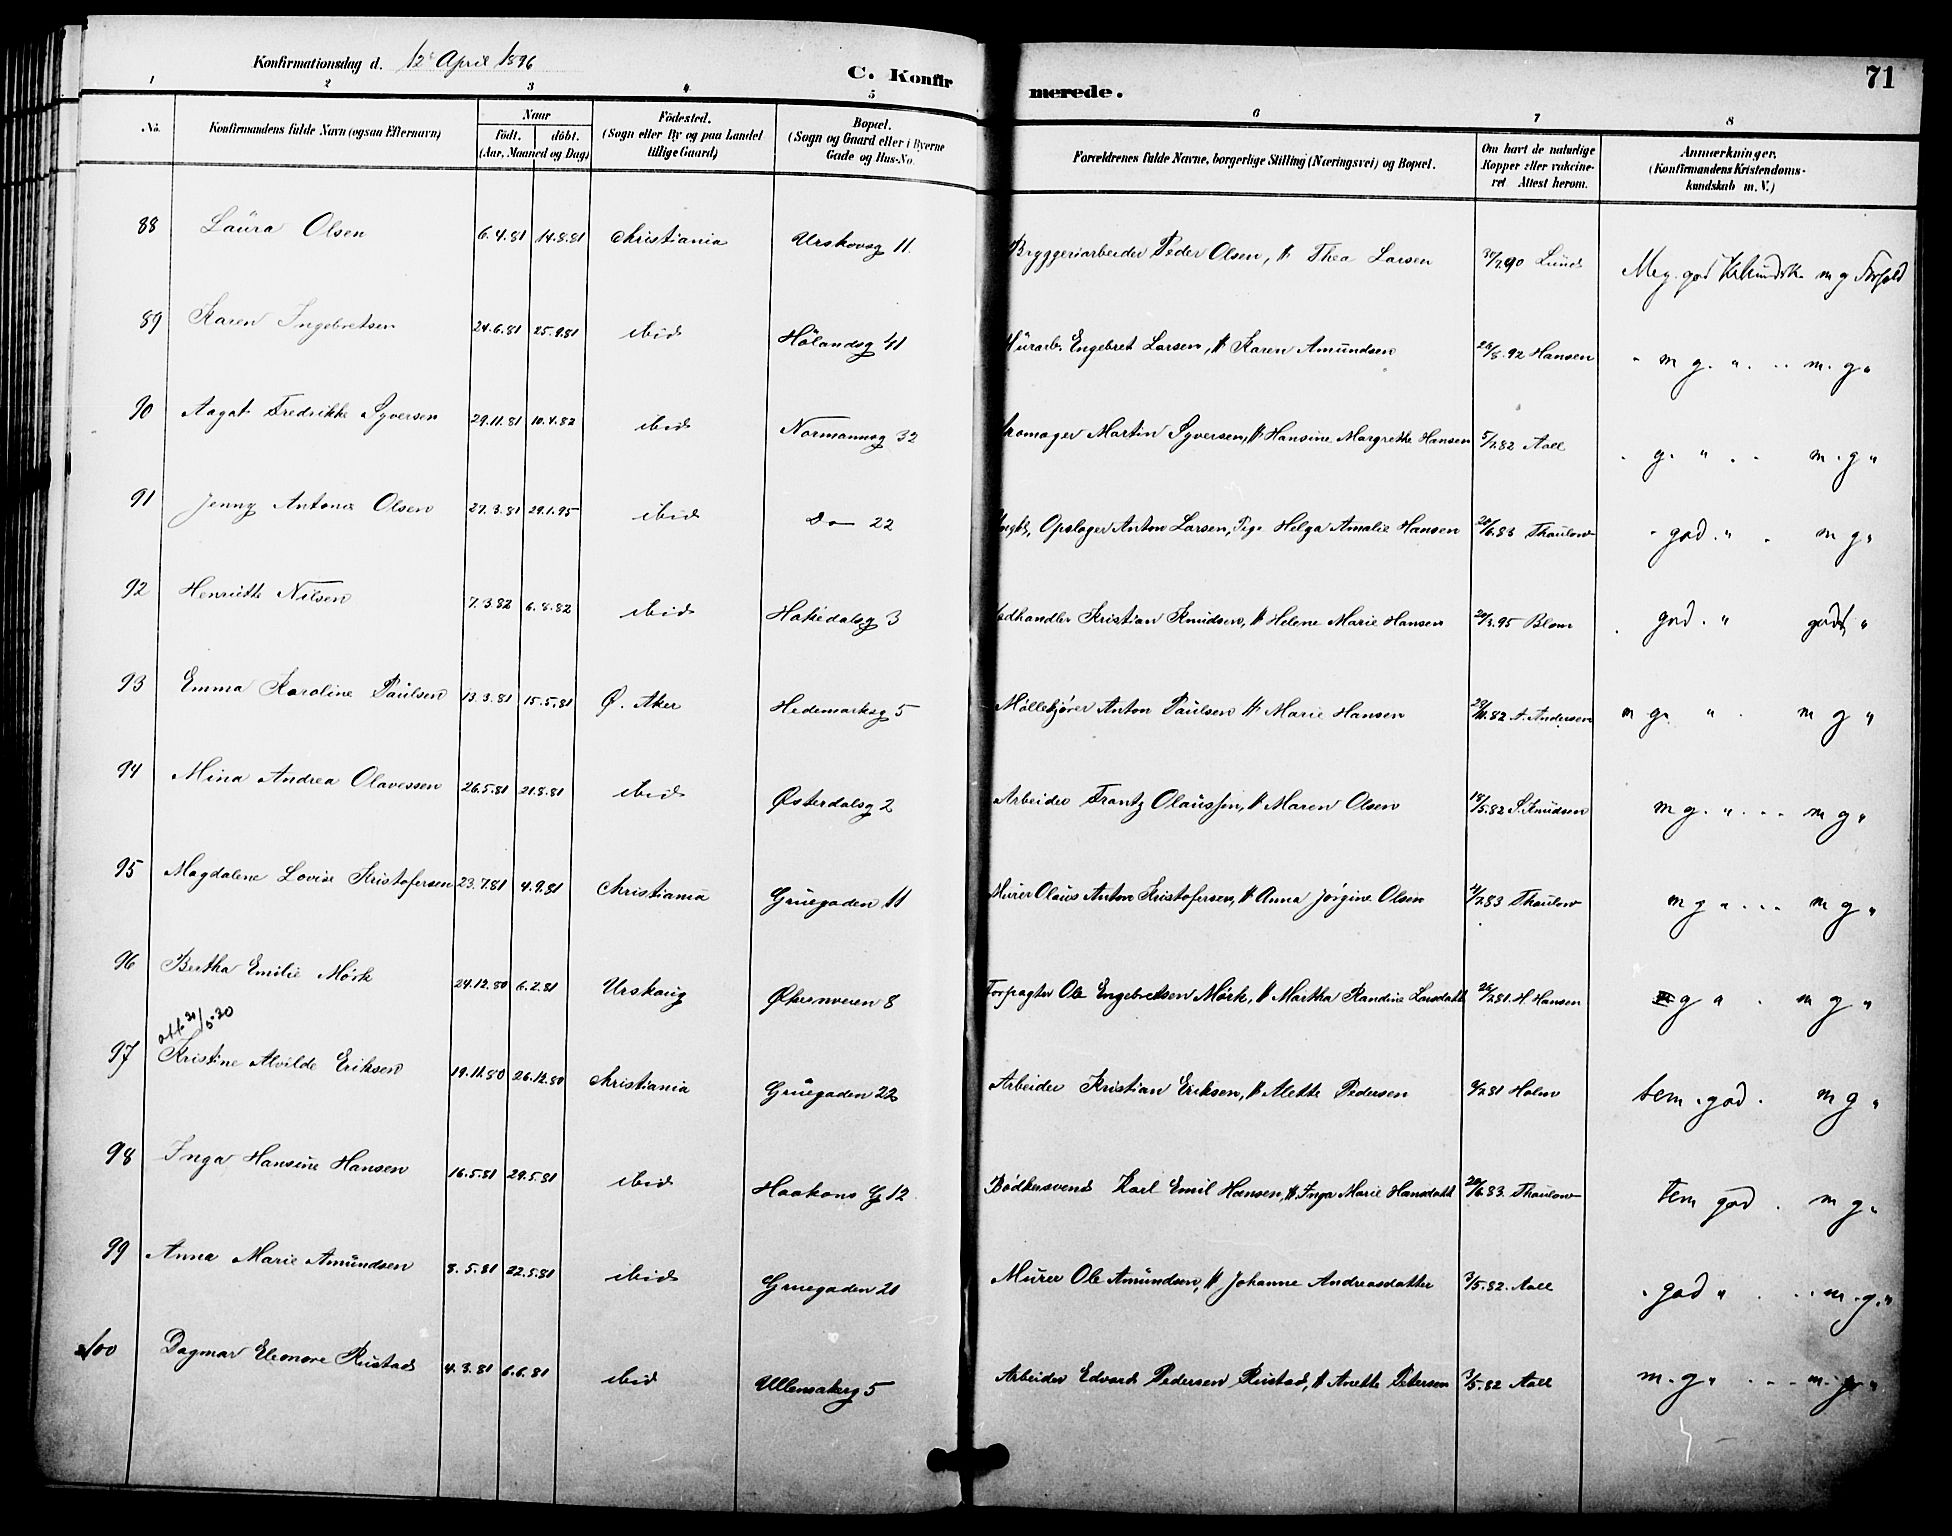 Konfirmationsdag d. 12' April 1896
C. Konfirmerede.
71
1 2 3 4 5 6 7 8
No.
Konfirmandens fulde Navn (ogsaa Efternavn)
Naar
födt. döbt.
(Aar, Maaned og Dag)
Födested.
(Sogn eller By og paa Landet
tillige Gaard)
Bopæl.
(Sogn og Gaard eller i Byerne
Gade og Hus-No.
Forældrenes fulde Navne, borgerlige Stilling (Næringsvei) og Bopæl.
Om havt de naturlige
Kopper eller vakcine-
ret Attest herom.
Anmærkninger.
(Konfirmandens Kristendoms-
kundskab m. V.)
88 Laura Olsen 6.4.81 14.8.81 Christiania Urskovsg 11 Bryggeriarbeider Peder Olsen, H Thea Larsen /2.90 Lund Meg. god Kr.kundsk. m g Forhold
89 Karen Ingebretsen 24.6.81 25.9.81 ibid Hölandsg 41 Murarb. Engebret Larsen, H Karen Amundsen 26/8.92 Hansen " m g. " .. m. g "
90 Aagot Fredrikke Syversen 29.11.81 10.4.82 ibid Normannsg 32 Martin Syversen, H Hansine Margrethe Hansen 5/7.82 Aall . g. " .. m. g "
91 Jenny Antonie Olsen 27.3.81 29.1.95 ibid Do 22 Ungk. Opslager Anton Larsen, Pige Helga Amalie Hansen 20/6.83 Thaulow . god. " . m g "
92 Henriette Nilsen 7.3.82 6.8.82 ibid Hakedalsg 3 Vedhandler Kristian Knudsen, H Helene Marie Hansen 20/3.95 Blom . god. " godt "
93 Emma Karoline Paulsen 13.3.81 15.5.81 Ø. Aker Hedemarksg 5 Møllekjører Anton Paulsen H Marie Hansen 29/10.82 A. Andersen m g. " . m g "
94 Mina Andrea Olavessen 26.5.81 21.8.81 ibid Østerdalsg 2 Arbeider Frantz Olaussen, H Maren Olsen 18/5.82 S. Knudsen m g. " ... m g "
95 Magdalene Lovise Kristofersen 23.7.81 4.9.81 Christiania Gruegaden 11 Murer Olaus Anton Kristofersen, H Anna Jørgine Olsen /2.83 Thaulow m g " ... m g "
96 Bertha Emilie Mörk 24.12.80 6.2.81 Urskoug Økernveien 8 Forpagter Ole Engebretsen Mörk, H Martha Randine Larsdatt 26/2.81. H. Hansen g " . m g "
att. 21/5.20
97 Kristine Alvilde Eriksen 19.11.80 26.12.80 Christiania Gruegaden 22 Arbeider Kristian Eriksen, H Mette Pedersen 9/2.81 Holm tem. god. m g "
98 Inga Hansine Hansen 16.5.81 29.5.81 ibid Haakons G 12 Bödkersvend Karl Emil Hansen, H Inga Marie Hansdatt 20/6.83. Thaulow tem god . m g "
99 Anna Marie Amundsen 8.5.81 22.5.81 ibid Gruegaden 20 Murer Ole Amundsen, H Johanne Andreasdatter 3/5.82. Aall . god " . .. m. g. "
100 Dagmar Eleonore Rustad 4.3.81 6.6.81 ibid Ullensakerg 5 Arbeider Edvard Pedersen Rustad, H Anette Petersen 3/5.82 Aall m. g " ... m. g "